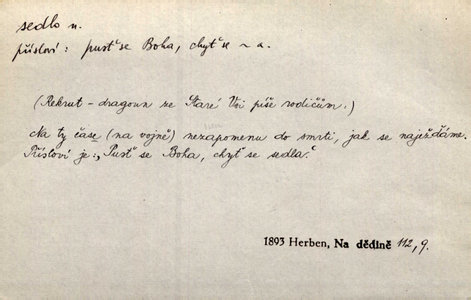 sedlo n.
přísloví: pusť se Boha, chyť se ~ a.
(Rekrut – dragoun ze Staré Vsi píše rodičům.)
Na ty čase (na vojně) nezapomenu do smrti, jak se najeżďáme.
Přísloví je: „Pusť se Boha, chyť se sedla."
1893 Herben, Na dědině 112, 9.